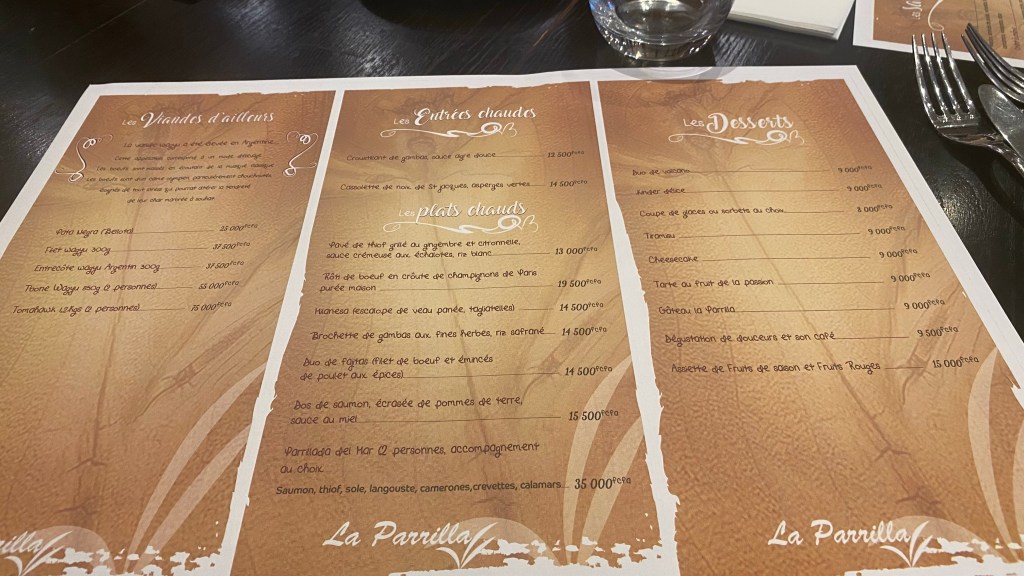 Les Viandes d'ailleurs
La viande Wagyu a été élevée en Argentine...
Pata Negra (Bellota) 25 000Fcfa
Filet Wagyu 300g 37 500Fcfa
Entrecôte Wagyu Argentin 300g 37 500Fcfa
Tbone Wagyu 850g (2 personnes) 55 000Fcfa
Tomahawk 1,2kgs (2 personnes) 75 000Fcfa
La Parrilla
Les Entrées chaudes
Croustillant de gambas, sauce aigre douce 13 500Fcfa
Cassolette de noix de St jacques, asperges vertes 14 500Fcfa
Les plats chauds
Pavé de thiof grillé au gingembre et citronnelle,
sauce crémeuse aux échalotes, riz blanc 13 000Fcfa
Rôti de boeuf en croûte de champignons de Paris
purée maison 19 500Fcfa
Milanesa (escalope de veau panée, tagliatelles) 14 500Fcfa
Brochette de gambas aux fines herbes, riz safrané 14 500Fcfa
Duo de fajitas (filet de boeuf et émincés
de poulet aux épices) 14 500Fcfa
Dos de saumon, écrasée de pommes de terre,
sauce au miel 15 500Fcfa
Parrillada del Mar (2 personnes, accompagnement
au choix
Saumon, thiof, sole, langouste, camerones,crevettes, calamars... 35 000Fcfa
La Parrilla
Les Desserts
Duo de volcano 9 000Fcfa
Ginger délice 9 000Fcfa
Coupe de glaces ou sorbets au choix 8 000Fcfa
Tiramisu 9 000Fcfa
Cheesecake 9 000Fcfa
Tarte au fruit de la passion 9 000Fcfa
Gâteau la Parrilla 9 000Fcfa
Dégustation de douceurs et son café 9 500Fcfa
Assiette de Fruits de saison et Fruits Rouges 15 000Fcfa
La Parrilla